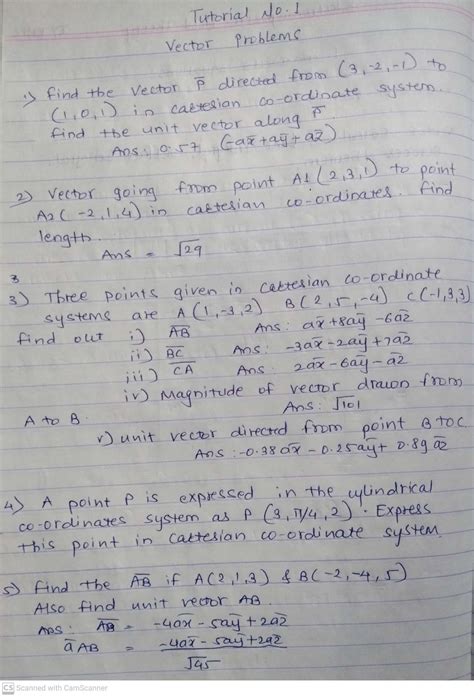 Tutorial No. 1
Vector Problems
1) find the vector P̄ directed from (3,-2,-1) to
(1,0,1) in cartesian co-ordinate system.
find the unit vector along P̄.
Ans: 0.57 (-ax̄+aȳ+az̄)
2) Vector going from point A1 (2,3,1) to point
A2 (-2,1,4) in cartesian co-ordinates. find
length.
Ans = √29
3
3) Three points given in cartesian co-ordinate
systems are A(1,-3,2) B(2,5,-4) C(-1,3,3)
find out i) A̅B̅ Ans: ax̄+8aȳ-6az̄
ii) B̅C̅ Ans: -3ax̄-2aȳ+7az̄
iii) C̅A̅ Ans: 2ax̄-6aȳ-az̄
iv) Magnitude of vector drawn from
A to B Ans: √101
v) unit vector directed from point B to C.
Ans: -0.38ax̄-0.25aȳ+0.89az̄
4) A point P is expressed in the cylindrical
co-ordinates system as P (3,π/4,2). Express
this point in cartesian co-ordinate system.
5) find the A̅B̅ if A(2,1,3) & B(-2,-4,5)
Also find unit vector AB.
Ans: A̅B̅ = -4ax̄-5aȳ+2az̄
āAB = -4ax̄-5aȳ+2az̄
√45
CS Scanned with CamScanner